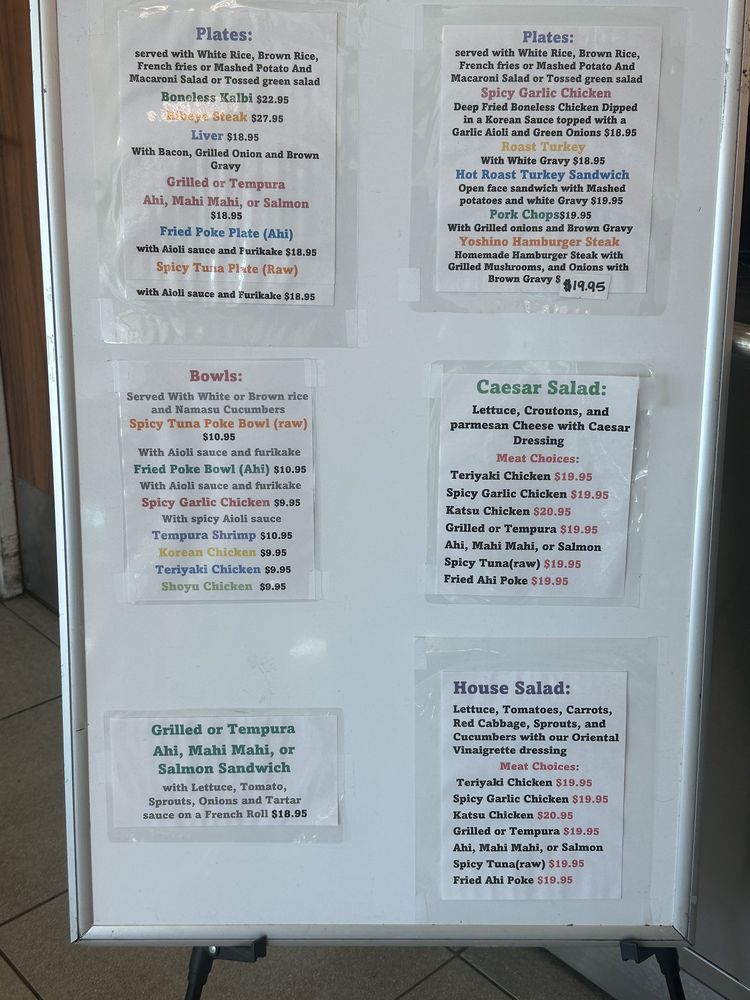 Plates:
served with White Rice, Brown Rice,
French fries or Mashed Potato And
Macaroni Salad or Tossed green salad
Boneless Kalbi $22.95
Ribeye Steak $27.95
Liver $18.95
With Bacon, Grilled Onion and Brown
Gravy
Grilled or Tempura
Ahi, Mahi Mahi, or Salmon
$18.95
Fried Poke Plate (Ahi)
with Aioli sauce and Furikake $18.95
Spicy Tuna Plate (Raw)
with Aioli sauce and Furikake $18.95
Plates:
served with White Rice, Brown Rice,
French fries or Mashed Potato And
Macaroni Salad or Tossed green salad
Spicy Garlic Chicken
Deep Fried Boneless Chicken Dipped
in a Korean Sauce topped with a
Garlic Aioli and Green Onions $18.95
Roast Turkey
With White Gravy $18.95
Hot Roast Turkey Sandwich
Open face sandwich with Mashed
potatoes and white Gravy $19.95
Pork Chops$19.95
With Grilled onions and Brown Gravy
Yoshino Hamburger Steak
Homemade Hamburger Steak with
Grilled Mushrooms, and Onions with
Brown Gravy $ $19.95
Bowls:
Served With White or Brown rice
and Namasu Cucumbers
Spicy Tuna Poke Bowl (raw)
$10.95
With Aioli sauce and furikake
Fried Poke Bowl (Ahi) $10.95
With Aioli sauce and furikake
Spicy Garlic Chicken $9.95
With spicy Aioli sauce
Tempura Shrimp $10.95
Korean Chicken $9.95
Teriyaki Chicken $9.95
Shoyu Chicken $9.95
Caesar Salad:
Lettuce, Croutons, and
parmesan Cheese with Caesar
Dressing
Meat Choices:
Teriyaki Chicken $19.95
Spicy Garlic Chicken $19.95
Katsu Chicken $20.95
Grilled or Tempura $19.95
Ahi, Mahi Mahi, or Salmon
Spicy Tuna(raw) $19.95
Fried Ahi Poke $19.95
Grilled or Tempura
Ahi, Mahi Mahi, or
Salmon Sandwich
with Lettuce, Tomato,
Sprouts, Onions and Tartar
sauce on a French Roll $18.95
House Salad:
Lettuce, Tomatoes, Carrots,
Red Cabbage, Sprouts, and
Cucumbers with our Oriental
Vinaigrette dressing
Meat Choices:
Teriyaki Chicken $19.95
Spicy Garlic Chicken $19.95
Katsu Chicken $20.95
Grilled or Tempura $19.95
Ahi, Mahi Mahi, or Salmon
Spicy Tuna(raw) $19.95
Fried Ahi Poke $19.95